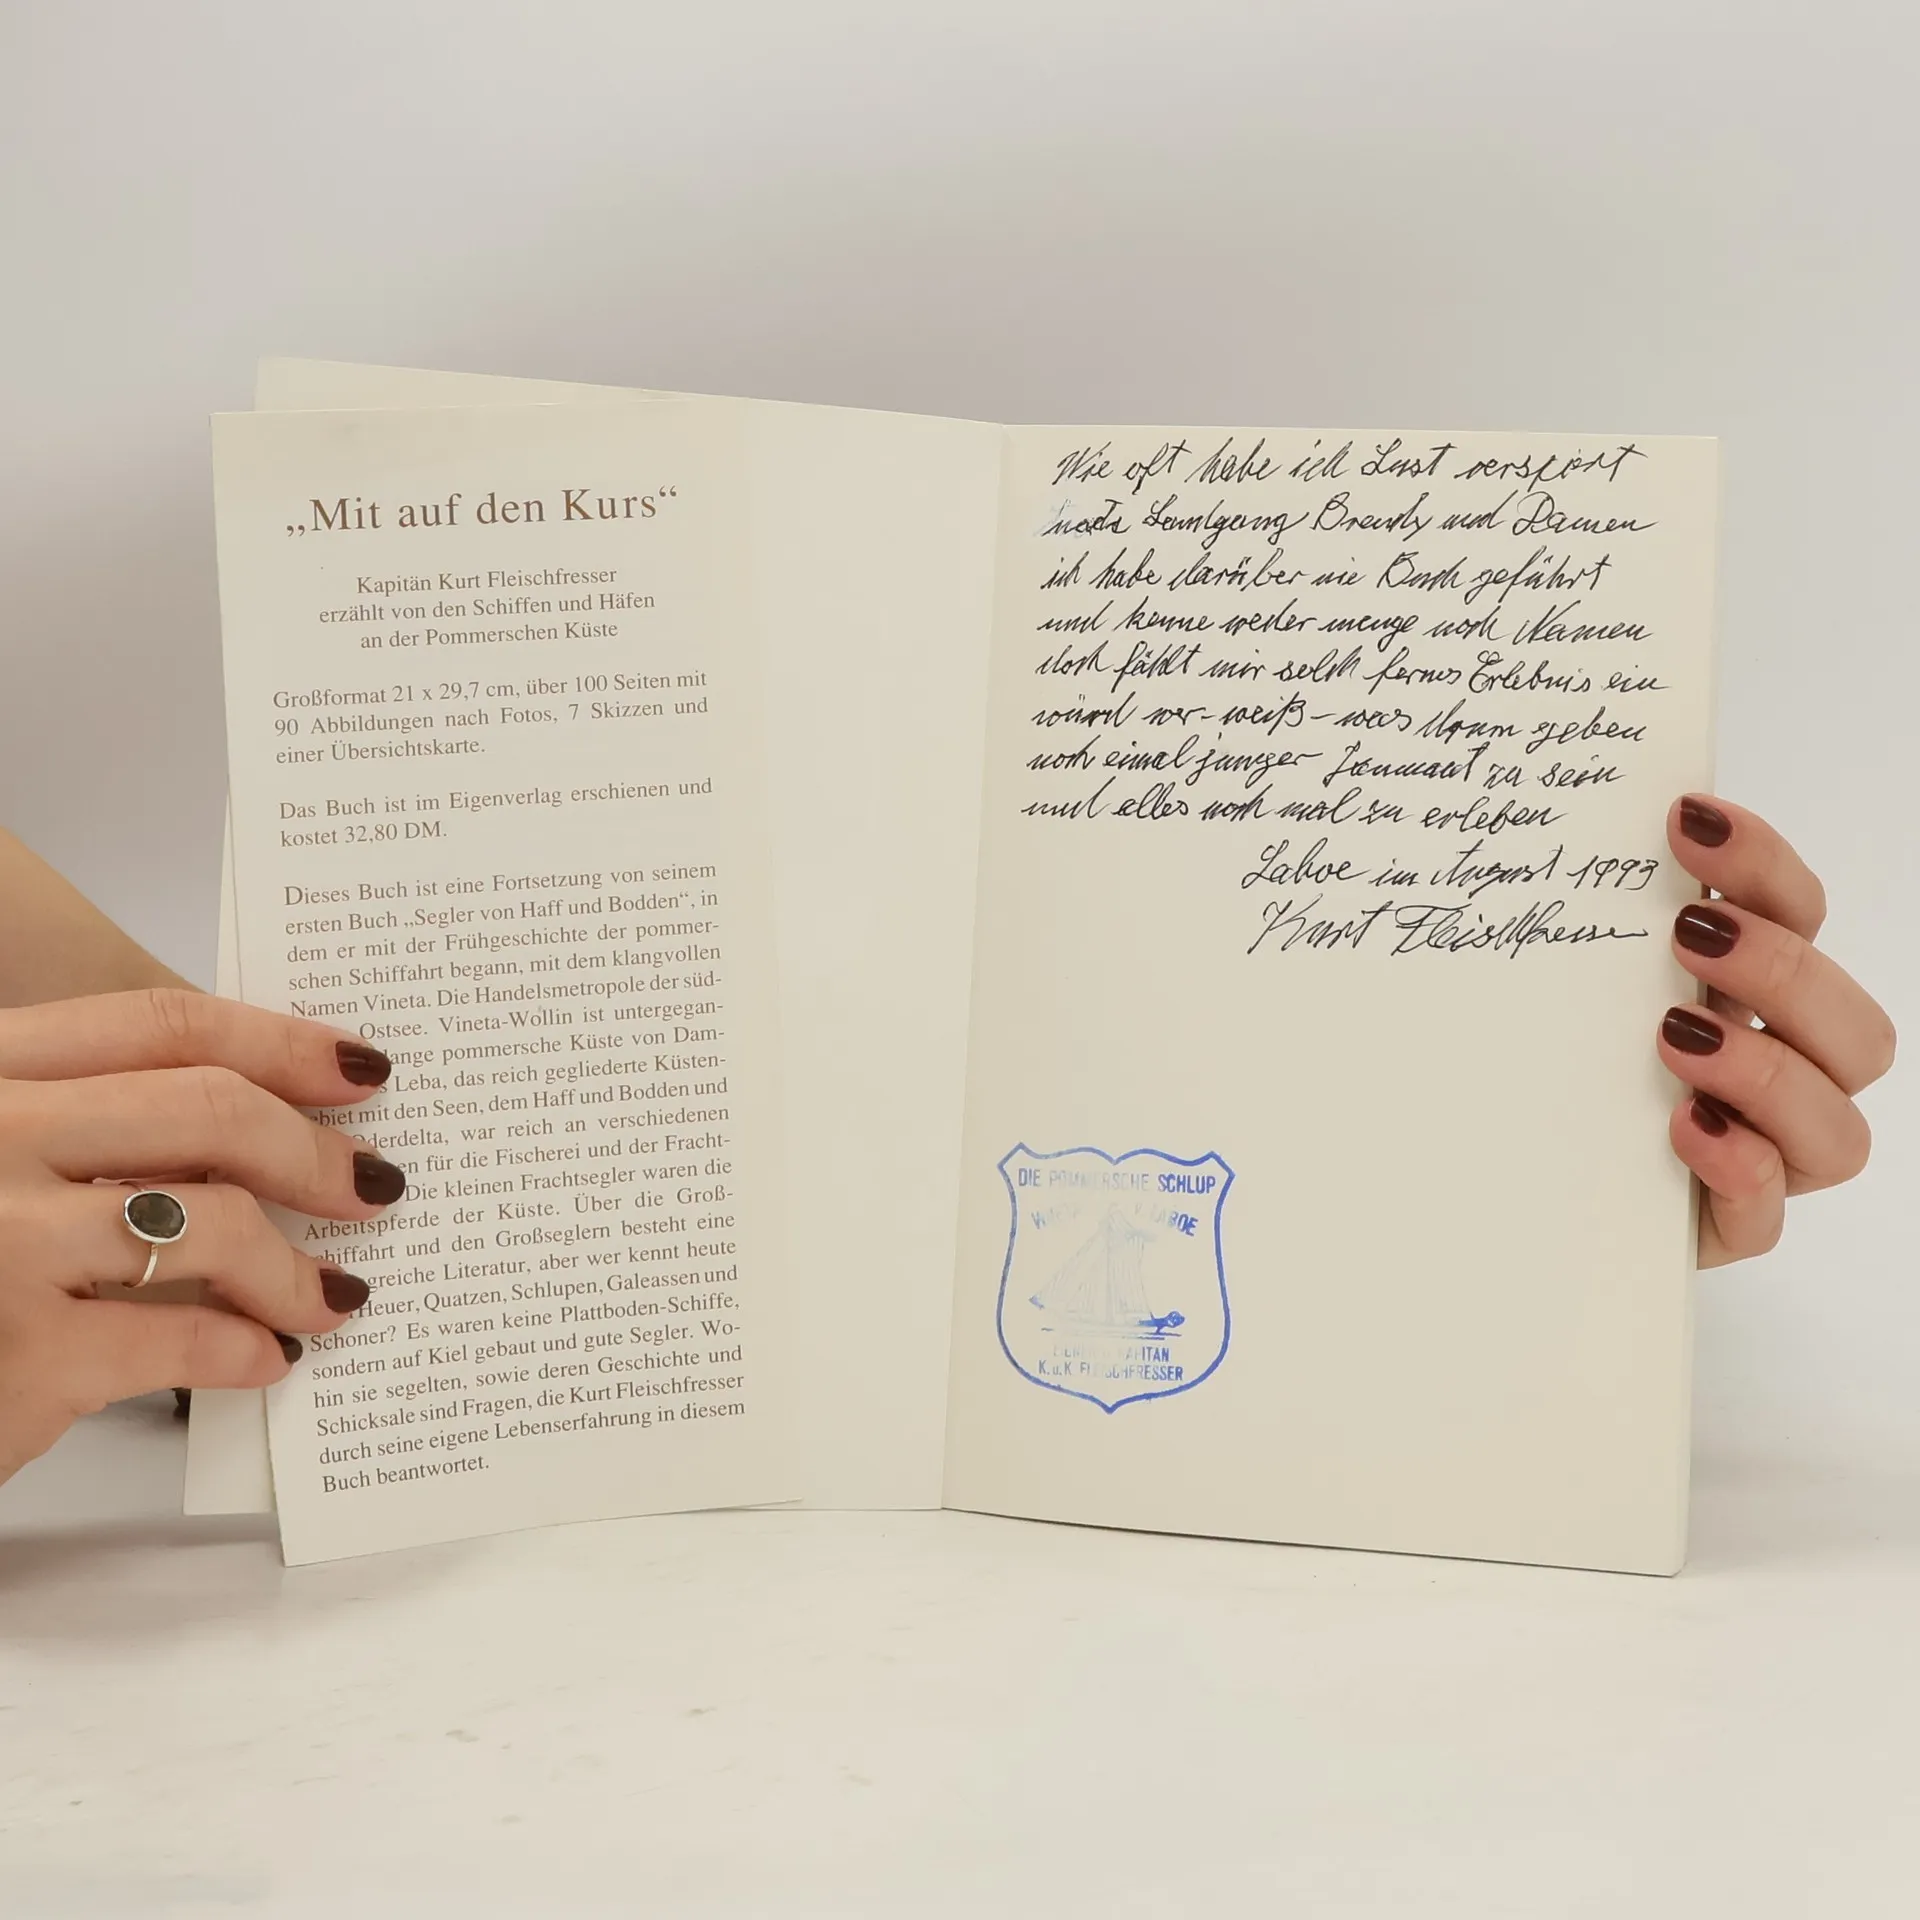 „Mit auf den Kurs“
Kapitän Kurt Fleischfresser
erzählt von den Schiffen und Häfen
an der Pommerschen Küste
Großformat 21 x 29,7 cm, über 100 Seiten mit
90 Abbildungen nach Fotos, 7 Skizzen und
einer Übersichtskarte.
Das Buch ist im Eigenverlag erschienen und
kostet 32,80 DM.
Dieses Buch ist eine Fortsetzung von seinem
ersten Buch „Segler von Haff und Bodden“, in
dem er mit der Frühgeschichte der pommer-
schen Schiffahrt begann, mit dem klangvollen
Namen Vineta. Die Handelsmetropole der süd-
Ostsee. Vineta-Wollin ist untergegan-
lange pommersche Küste von Dam-
Leba, das reich gegliederte Küsten-
ebiet mit den Seen, dem Haff und Bodden und
derdelta, war reich an verschiedenen
en für die Fischerei und der Fracht-
Die kleinen Frachtsegler waren die
Arbeitspferde der Küste. Über die Groß-
chiffahrt und den Großseglern besteht eine
greiche Literatur, aber wer kennt heute
Heuer, Quatzen, Schlupen, Galeassen und
Schoner? Es waren keine Plattboden-Schiffe,
sondern auf Kiel gebaut und gute Segler. Wo-
hin sie segelten, sowie deren Geschichte und
Schicksale sind Fragen, die Kurt Fleischfresser
durch seine eigene Lebenserfahrung in diesem
Buch beantwortet.
Wie oft habe ich Lust verspört
nach Landgang Brendy und Damen
ich habe darüber nie Buch geführt
und kenne weder menge noch Namen
doch fählt mir solch fernes Erlebnis ein
würd wer-weiß-was drum geben
noch einmal junger Janmaat zu sein
und alles noch mal zu erleben
Laboe im August 1993
Kurt Fleischfresser
DIE POMMERSCHE SCHLUP
LABOE
KAPITÄN
K.u.K. FLEISCHFRESSER